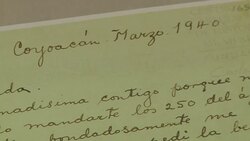 Coyoacán Marzo 1940
da.
nadisima contigo porque n
o mandarte los 250 del á
bondadosamente me
pedi la be